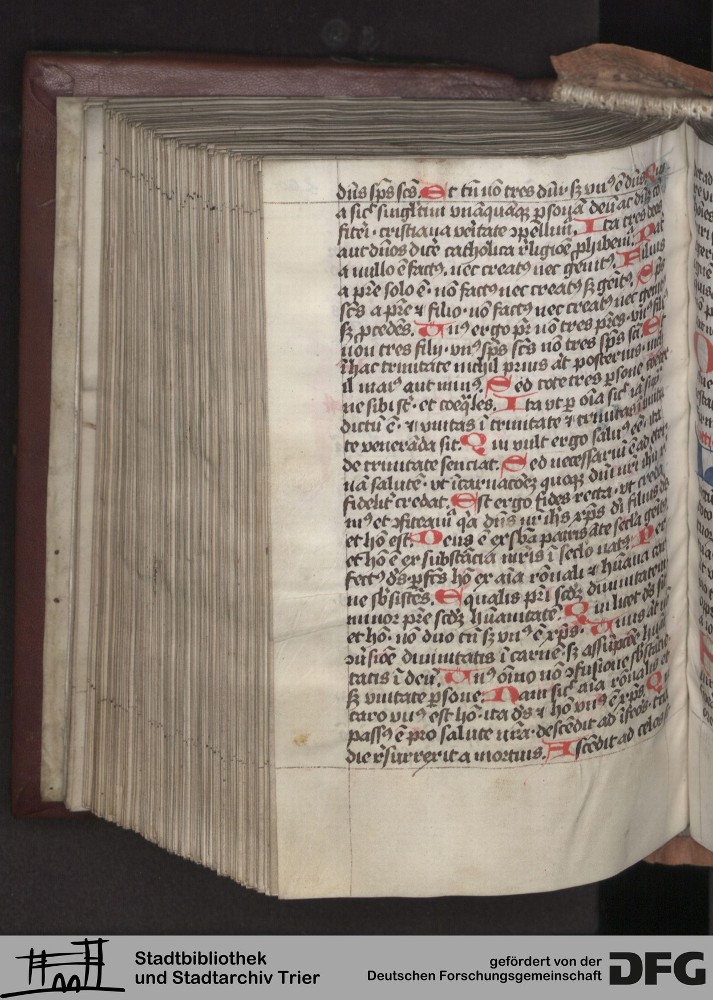 dn̄s sp̄s scs̄. Et tn̄ nō tres dn̄i sꝫ vnꝰ ē dn̄s. Qui
a sic̄ singl̓tim vnāquāqꝫ ꝑsonā deū ac dn̄m ꝯ
fiteri · cristiana veritate ꝯpellim̄. Ita tres deos
aut dn̄os dice̅ catholica r̓ligiōe ꝓhibem̄. Pat̓
a nullo ē factꝰ. nec creatꝰ nec genitꝰ. Filius
a pr̄e solo ē · nō factꝰ nec creatꝰ sꝫ genitꝰ. Sp̄s
scs̄ a pr̄e ⁊ filio · nō factꝰ nec creatꝰ nec genitꝰ
sꝫ ꝓcedēs. Vnꝰ ergo pr̄ nō tres pr̄es · vnꝰ filiꝰ
nōn tres filij · vnꝰ sp̄s scs̄ nō tres sp̄s sc̄i. Et
ī hac trinitate nichil prius aūt posterius · nich
il maiꝰ aut minꝰ. Sed tote tres ꝑsone coet̓
ne sibi st̄ · et coeq̄les. Ita vt ꝑ oīa sic̄ iā sup̄
dictū ē · ⁊ vnitas ī trinitate ⁊ trinitas ī vnita
te venerāda sit. Qui vult ergo saluꝰ eē · ita
de trinitate senciat. Sed necessariū ē ad et̓
nā salutē · vt īcarnacōeꝫ quoqꝫ dn̄i nr̄i ih̄u x̄
fidelit̓ credat. Est ergo fides recta · vt creda
mꝰ et ꝯfiteam̄ q̓a dn̄s nr̄ ih̄s xp̄s dī filius ds̄
et hō est. Deus ē ex sb̄a patris āte secl̓a genitꝰ
et hō ē ex substācia mr̄is ī seclo natꝰ. Per
fectꝰ ds̄ · ꝑfcs̄ hō ex aīa rōnali ⁊ hūana car
ne sb̄sistēs. Equalis pr̄i scd̄ꝫ diuinitatem
minor pr̄e scd̄ꝫ hūanitatē. Qui licet ds̄ sit
et hō · nō duo tn̄ sꝫ vnꝰ ē xp̄s. Vnus aūt nō
ꝯūsiōe diuinitatis ī carnē · sꝫ assūpcōe hūa
tatis ī deū. Vnꝰ oīno nō ꝯfusione sb̄stācie
sꝫ vnitate ꝑsone. Nam sic̄ aīa rōnalis et
caro vnꝰ est hō · ita ds̄ ⁊ hō vnꝰ ē xp̄s. Qui
passꝰ ē pro salute nr̄a · descēdit ad īferos · t̓cia
die r̓surrexit a mortuis. Ascēdit ad celos
Stadtbibliothek
und Stadtarchiv Trier
gefördert von der
Deutschen Forschungsgemeinschaft
DFG